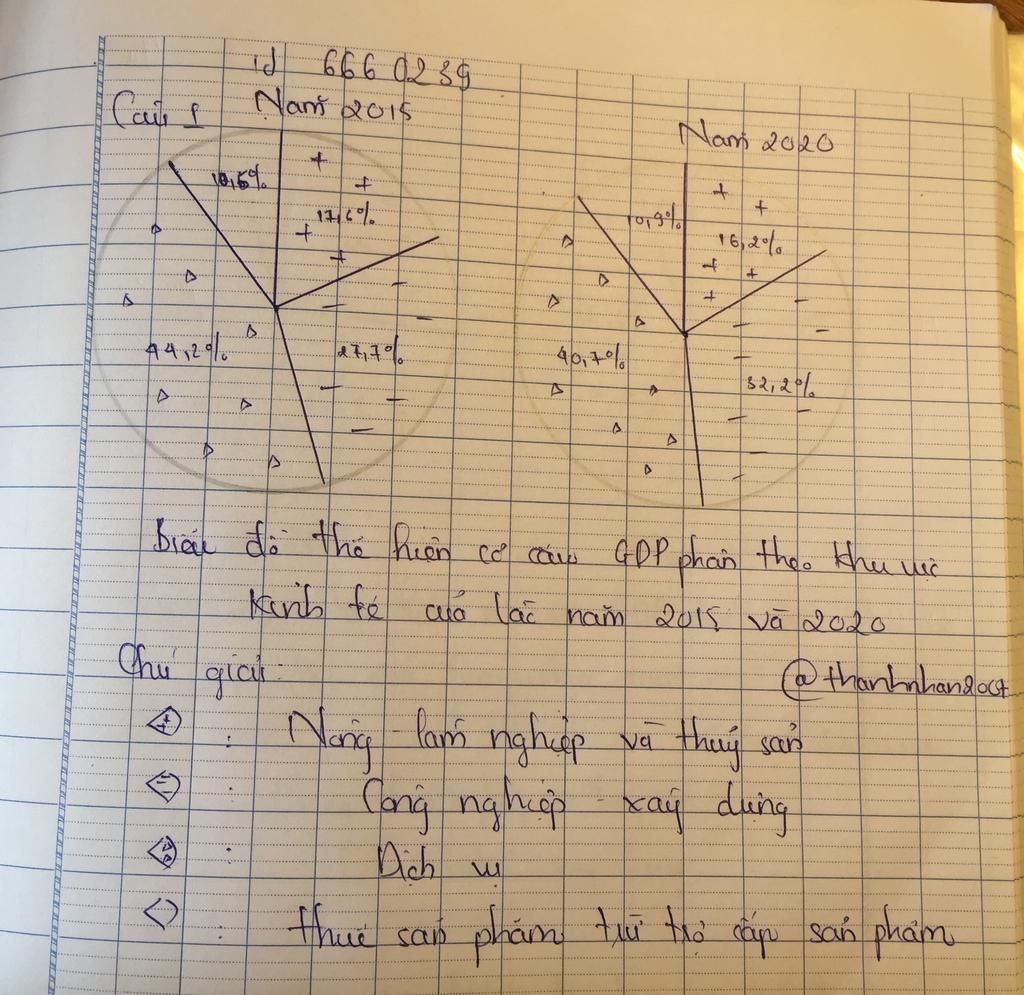 id 6660239
Câu 1
Năm 2015
Năm 2020
10,5%
17,6%
44,2%
27,7%
10,9%
16,2%
40,7%
32,2%
Biểu đồ thể hiện cơ cấu GDP phân theo khu vực
kinh tế của lào năm 2015 và 2020
Chú giải:
@thanhnhan2oct
+ : Nông - lâm nghiệp và thuỷ sản
- : Công nghiệp - xây dựng
: Dịch vụ
: thuế sản phẩm trừ trợ cấp sản phẩm